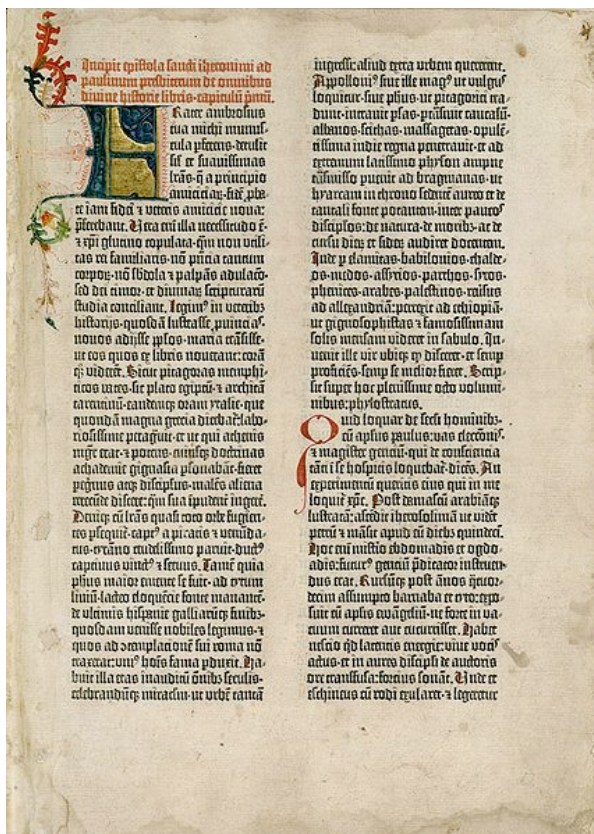 Incipit epistola sancti iheronimi ad
paulinum presbiterum de omnibus
divine historie libris. capitulū pmū.
FRater ambrosius
tua michi munus-
cula pferens. detulit
sil' et suavissimas
lrās. q̄ a principio
amicicia₂. fidē pba-
te iam fidei ⁊ veteris amicicie nova:
pferebant. Vera enī illa necessitudo ē.
⁊ xpi glutino copulata. qm̄ non utili-
tas rei familiaris. nō pn̄cia tantum
corpo₂. nō sbdola ⁊ palpās adulacō.
sed dei timor. et divina₂ scripturarū
studia conciliant. Legimꝰ in veterib₃
historijs. quosdā lustrasse. puīciaꜱ.
novos adijsse pplos. maria trāsisse.
ut eos quos ex libris noverant: corā
q₃ viderēt. Sicut pitagoras memphi-
ticos vates. sic plato egiptū. ⁊ architā
tarentinū. eandemq₃ oram ytalie. que
quondā magna grecia dicebaꞇ: labo-
riosissime peragᵛit. et ut qui athenis
mgr̄ erat. ⁊ potens. cuiusq₃ doctrinas
achademie gignasia psonabāt. fieret
pegrinus atq₃ discipulus. malēs aliena
verecūde discere: qm̄ sua īpudent̄ ingerē.
Deniq₃ cū lrās quasi toto orbe fugien-
tes pseqᵗur. captꝰ a piratis ⁊ venūda-
tus. tyrāno crudelissimo paruit. ductꝰ
captivus vinctꝰ ⁊ servus. Tamē quia
phus maior emente se fuit. ad tytum
liviū. lacteo eloquēcie fonte manantē.
de ultimis hispanie galliarūq₃ finib₃.
quosdam venisse nobiles legimus. ⁊
quos ad ɔtemplacionē sui roma nō
traxerat: uniꝰ hoīs fama pduxit. Ha-
buit illa etas inauditū oīnib₃ seculis.
celebrandūq₃ miraclm̄. ut urbē tantā
ingressi: aliud extra urbem quererent.
Appolloniꝰ sive ille magꝰ ut vulgus
loquitur. sive phus. ut pitagorici tra-
dunt. intravit psas. ptrāsivit caucasū.
albanos. scithas. massagetas. opulē-
tissima indie regna penetravit. et ad
extremum latissimo physon amne
trāsmisso puenit ad bragmanas. ut
hyarcam in throno sedentē aureo et de
tantali fonte potantem. inter paucos
disciplos: de natura. de morib₃. ac de
cursu die₂ et side₂ audiret docentem.
Inde p elamitas. babilonios. chalde-
os. medos. assyrios. parthos. syros.
phenices. arabes. palestinos. revsus
ad allexandriā: perrexit ad ethiopiā.
ut gignosophistas ⁊ famosissimam
solis mensam videret in sabulo. In-
venit ille vir ubiq₃ qᵈ disceret. et semp
proficiēs. semp se melior fieret. Scrip-
sit super hoc plenissime octo volumi-
nibus: phylostratus.
Quid loquar de seculi hominib₃.
cū apstlus paulus: vas electōnis.
⁊ magister genciū. qui de consciencia
tāti ī se hospitis loquebaꞇ. dicēs. An
experimentū queritis eius qui in me
loquiꞇ xpc. Post damascū arabiāq₃
lustratā: ascēdit iherosolimā ut vidēt
petrū ⁊ māsit apud eū dieb₃ quindeci.
Hoc enī misterio ebdomadis et ogdo-
adis: futurꝰ genciū pdicator instruen-
dus erat. Rursūq₃ post ānos qtuor-
decim assumpto barnaba et tyto: expo-
suit cū apstlis ewāgeliū. ne forte in va-
cuum curreret aut cucurrisset. Habet
nescio qᵈ latentis energie: vive vocis
actus. et in aures discipli de auctoris
ore transfusa: forcius sonat. Unde et
eschineus cū rodi exularet. ⁊ legeretur